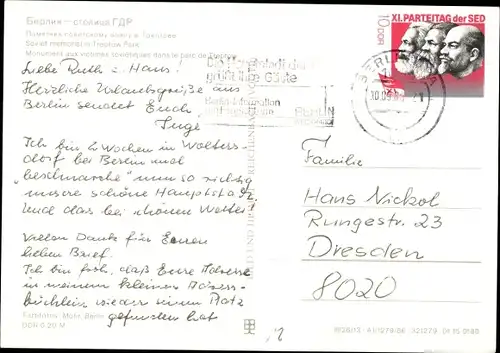 Берлин — столица ГДР
Памятник советскому воину в Трептове
Soviet memorial in Treptow Park
Monument aux victimes soviétiques dans le parc de Treptow
Liebe Ruth u. Hans!
Herzliche Urlaubsgrüße aus
Berlin sendet Euch
Inge
Ich bin 2 Wochen in Wolters-
dorf bei Berlin und
"beschmarche" nun so richtig
unsere schöne Hauptstadt.
Und das bei schönem Wetter!
Vielen Dank für Euren
lieben Brief.
Ich bin froh, daß Eure Adresse
in meinem kleinen Adress-
büchlein wieder einen Platz
gefunden hat
Mohr, Berlin
XI. PARTEITAG der SED
10 DDR
BERLIN
grüßt ihre Gäste
Berlin-Information
BERLIN
Familie
Hans Nickol
Rungestr. 23
Dresden
8020